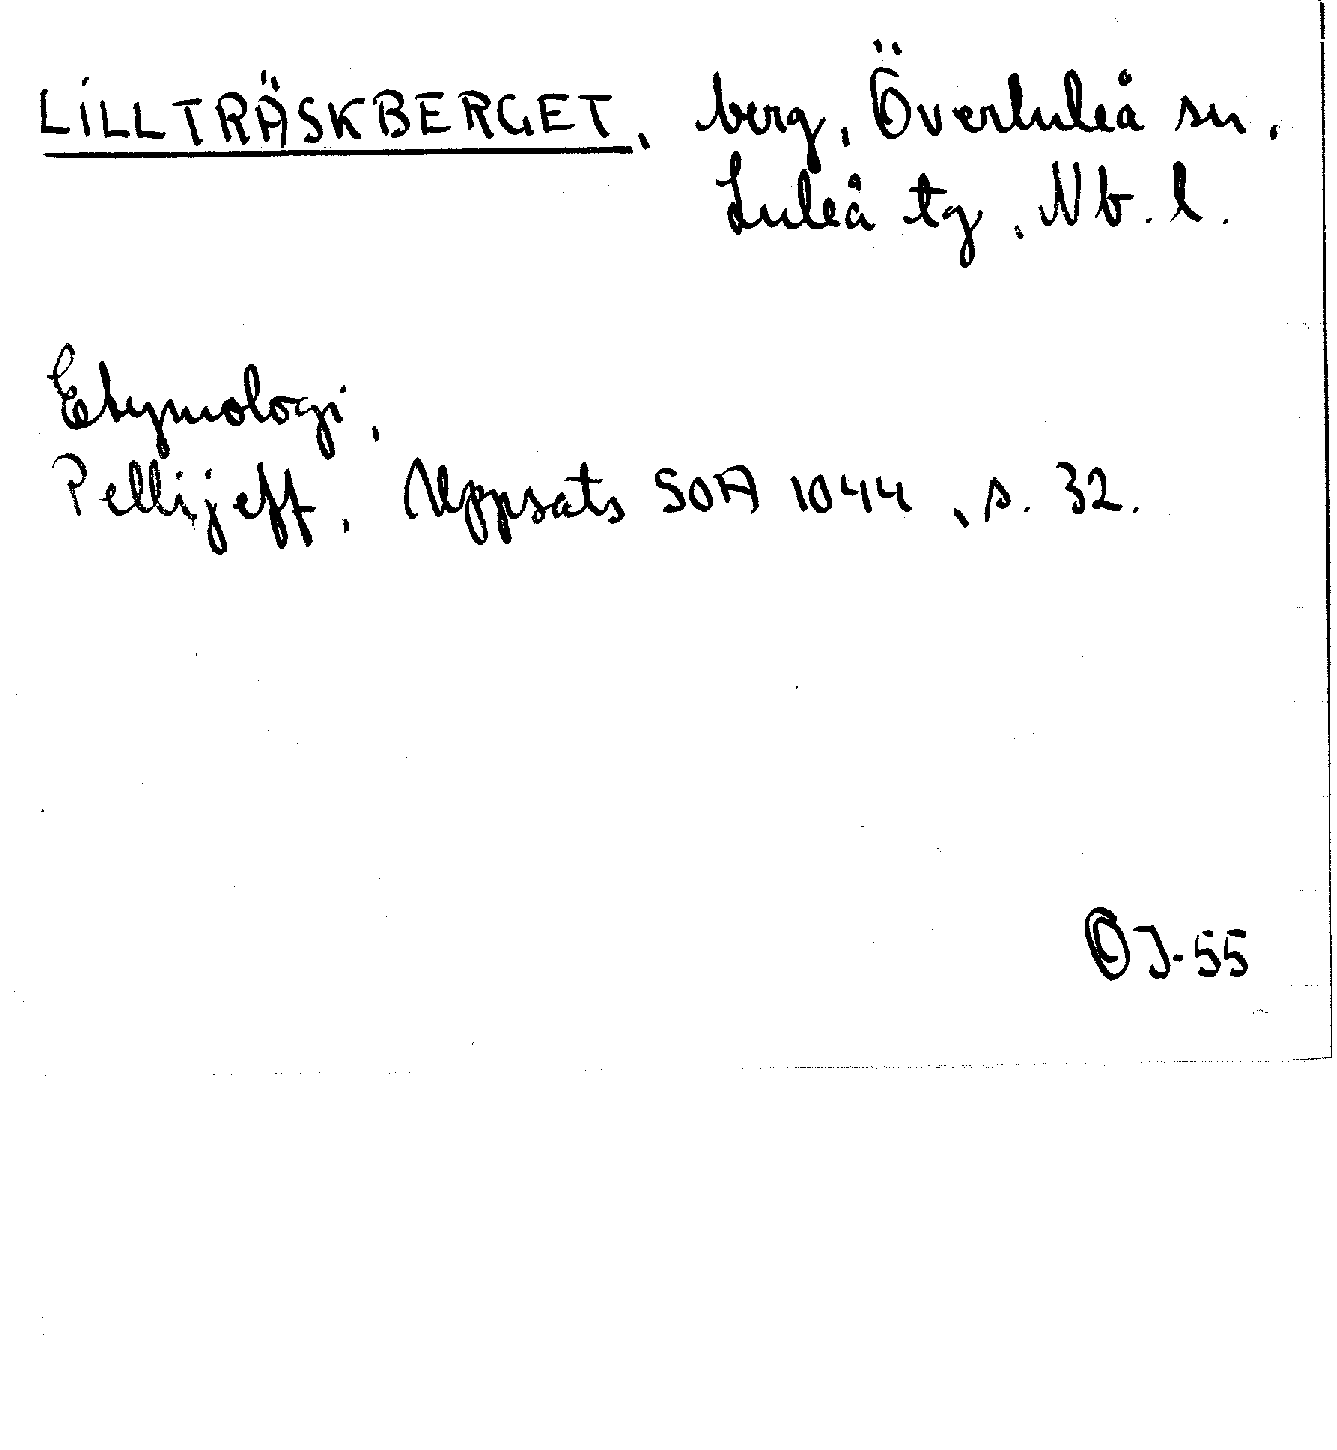 LILLTRÄSKBERGET, berg, Överluleå sn,
Luleå tg, Nb. l.
Etymologi,
Pellijeff, Uppsats SOA 1044, s. 32.
OJ-55